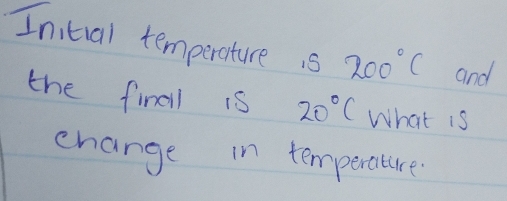 Initial temperature is 200°C and
the final is 20°C What is
change in temperature.